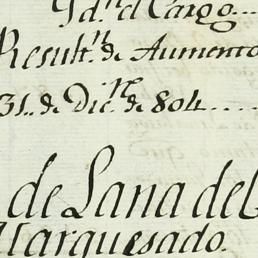 Yd.ⁿ el Cargo...
Result.ⁿ de Aumento
31.. de Dic.ʳᵉ de 804....
de Lana del
Marquesado.